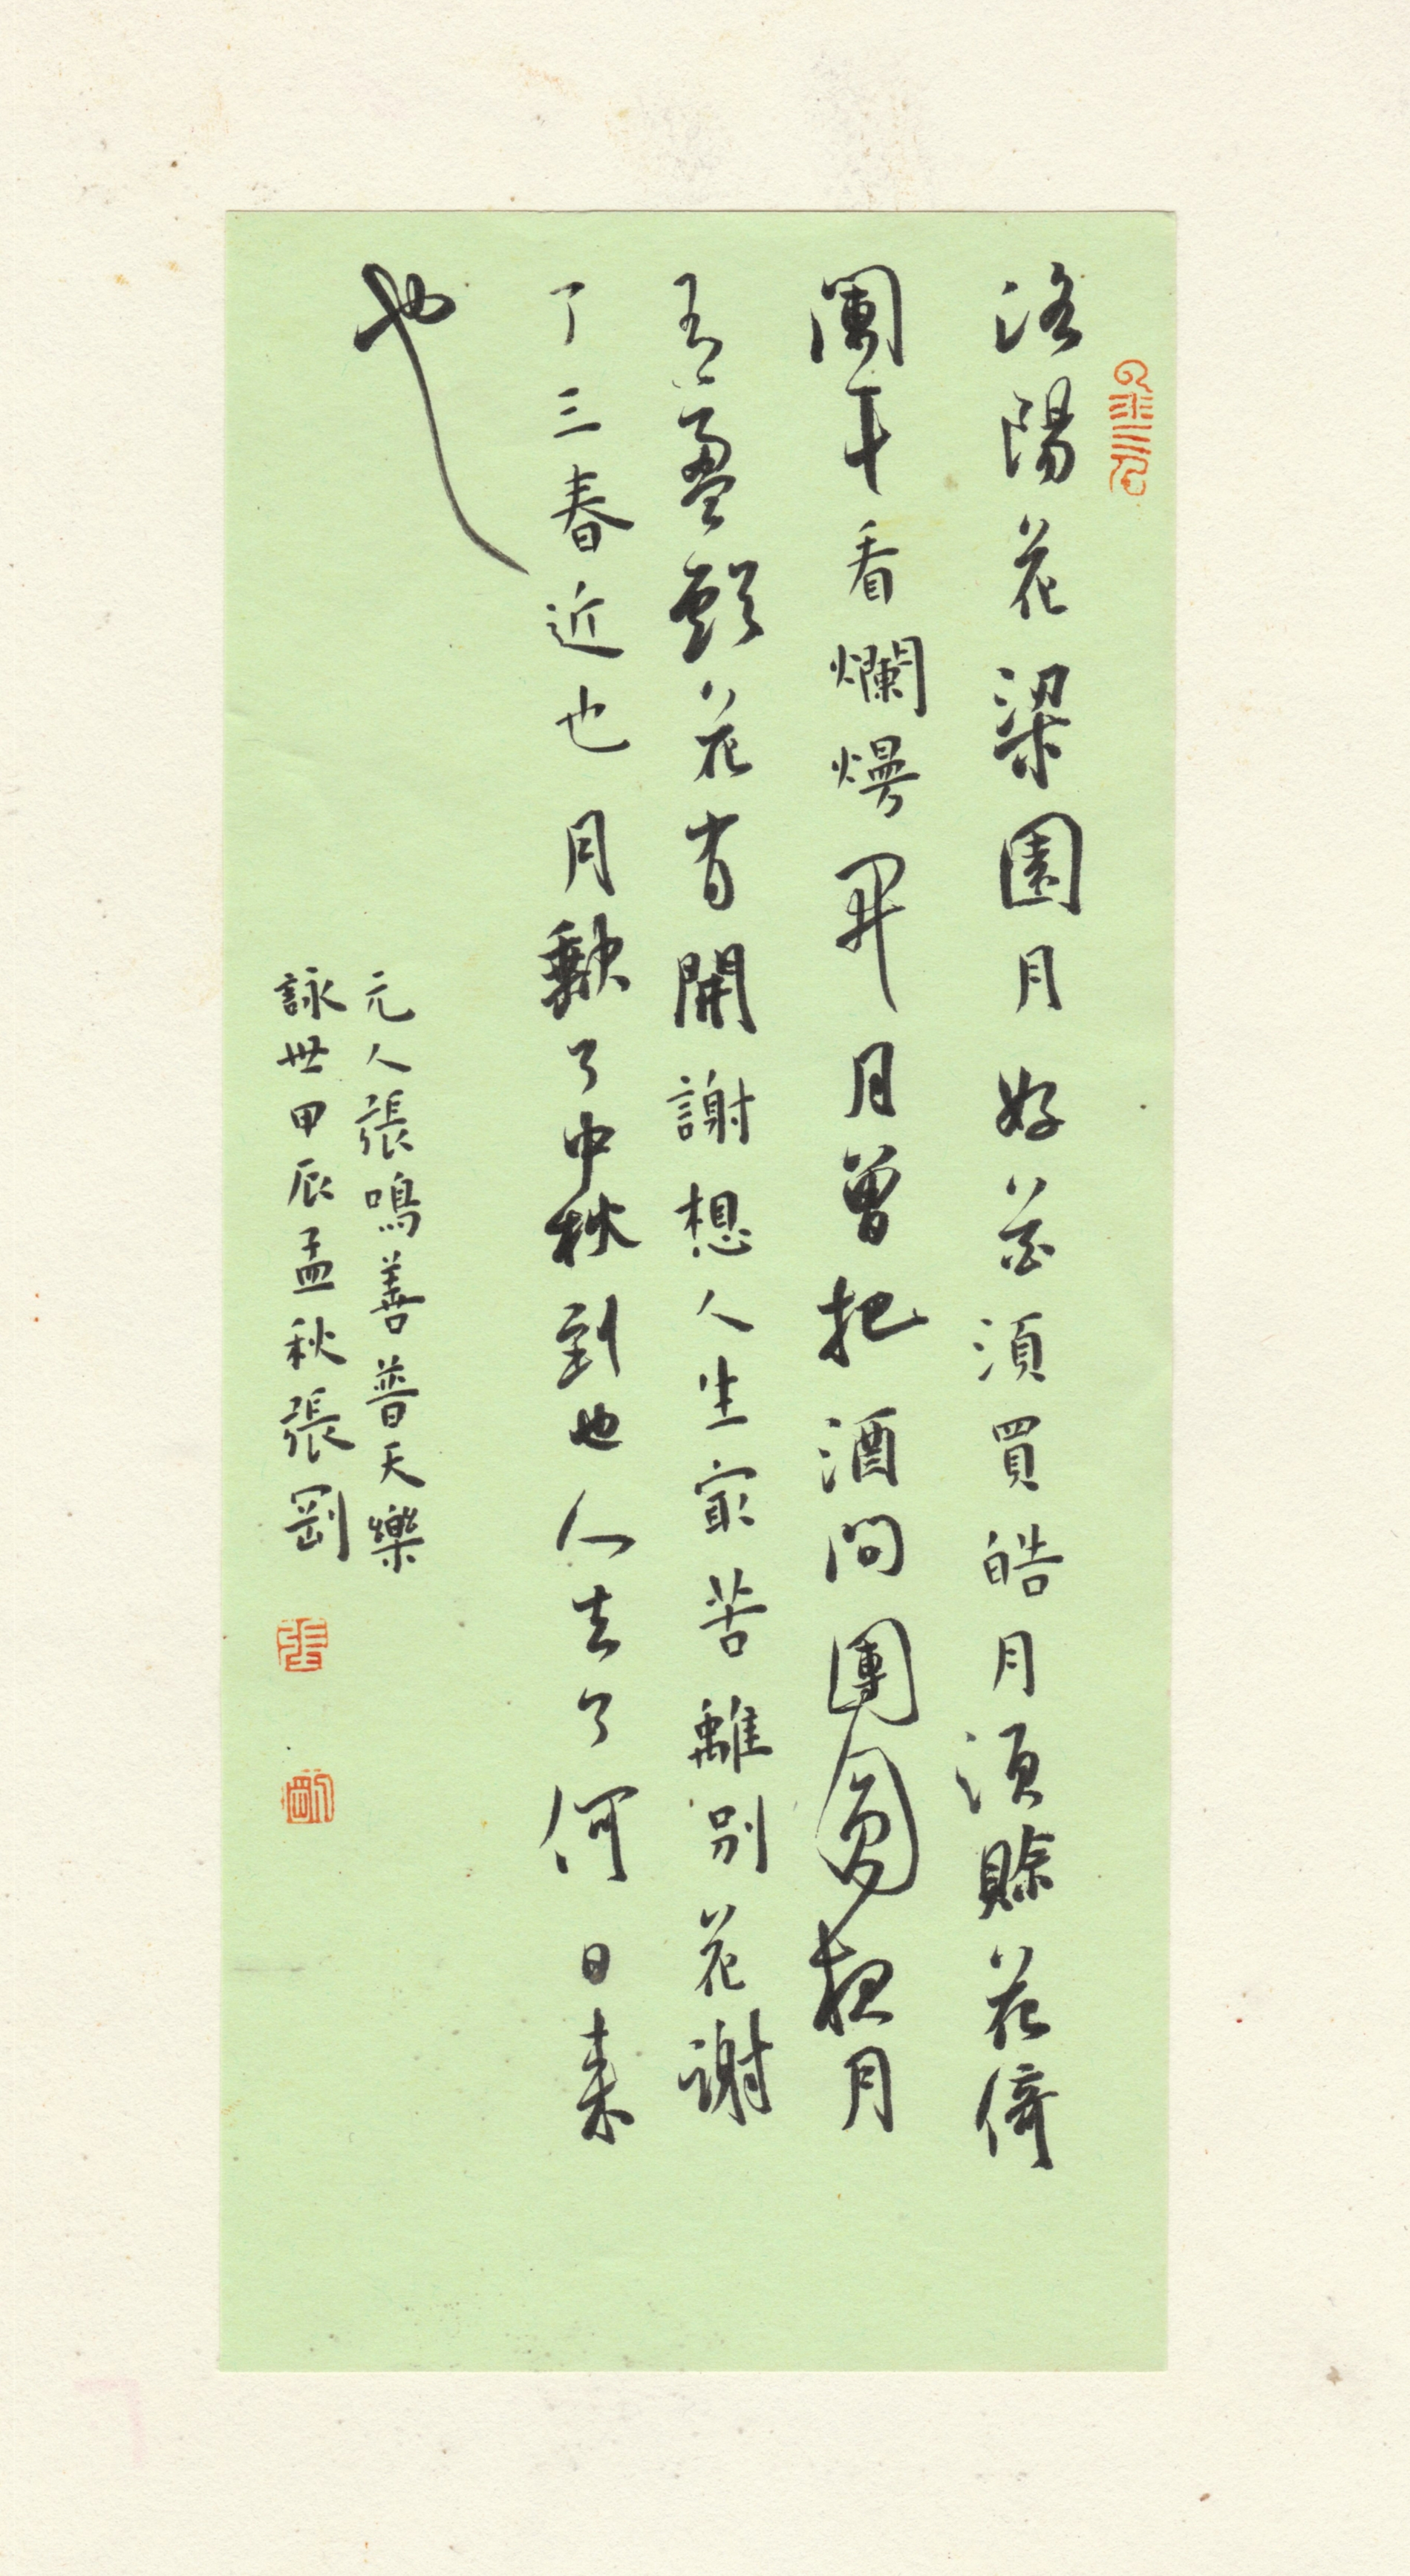 洛陽花梁園月好花須買皓月須賒花倚
闌干看爛熳開月曾把酒問團圓夜月
有盈虧花有開謝想人生最苦離別花謝
了三春近也月缺了中秋到也人去了何日來
也
元人張鳴善普天樂
詠世甲辰孟秋張剛
張
剛